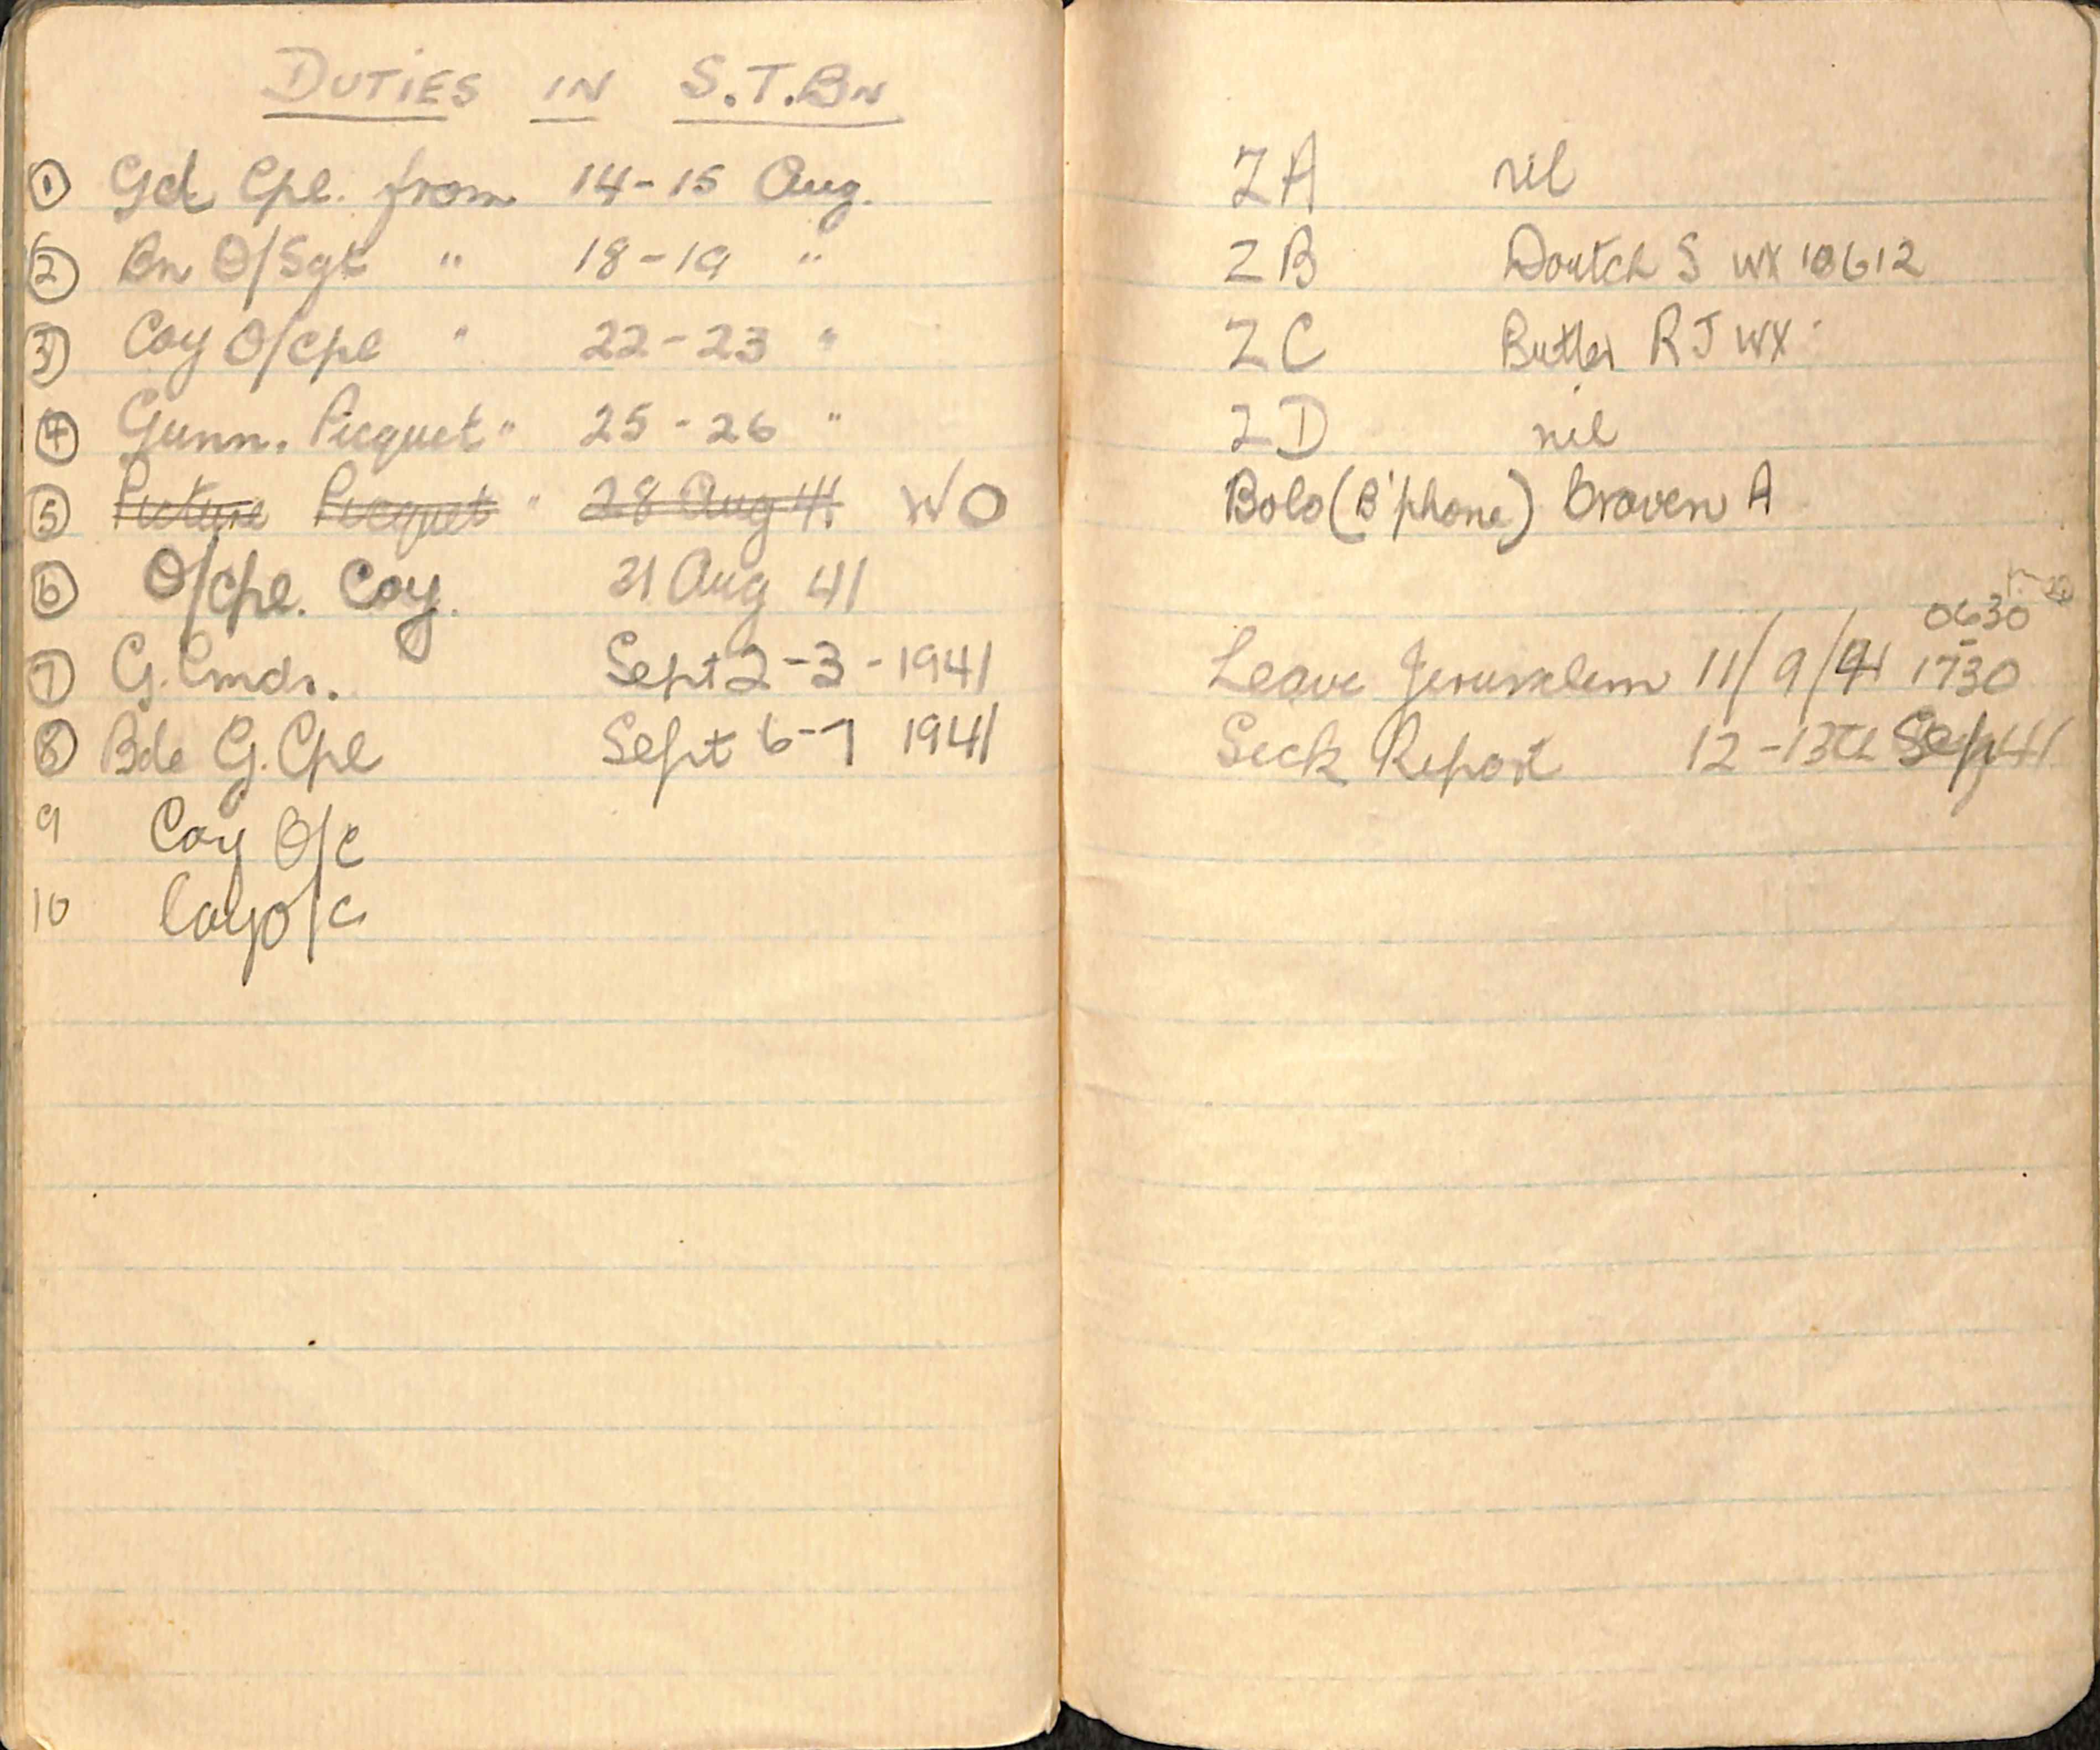 DUTIES IN S.T.BN
① Gd Cpl. from 14-15 Aug.
② Bn O/Sgt " 18-19 "
③ Coy O/Cpl " 22-23 "
④ Gunn. Picquet " 25-26 "
⑤ Picture Picquet " 28 Aug 41 WO
⑥ O/Cpl. Coy. 21 Aug 41
⑦ G. Cmdr. Sept 2-3-1941
⑧ Bde G. Cpl Sept 6-7 1941
9 Coy O/C
10 Coy O/C
ZA nil
ZB Doutch S WX 10612
ZC Butler R J WX
ZD nil
Bolo (B'phone) Craven A
0630 -
Leave Jerusalem 11/9/41 1730
Sick Report 12-13th Sep 41